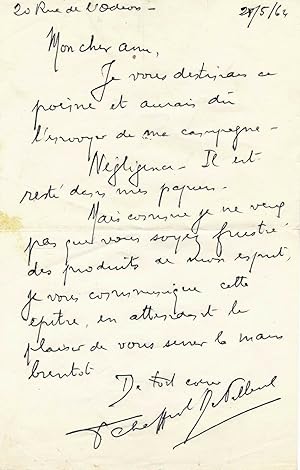 20 Rue de l'Odéon - 28/5/64
Mon cher ami,
Je vous destinais ce
poème et aurais dû
l'envoyer de ma campagne -
Négligence - Il est
resté dans mes papiers -
Mais comme je ne veux
pas que vous soyez frustré
des produits de mon esprit,
je vous communique cette
épitre, en attendant le
plaisir de vous serrer la main
bientot
De tout cœur